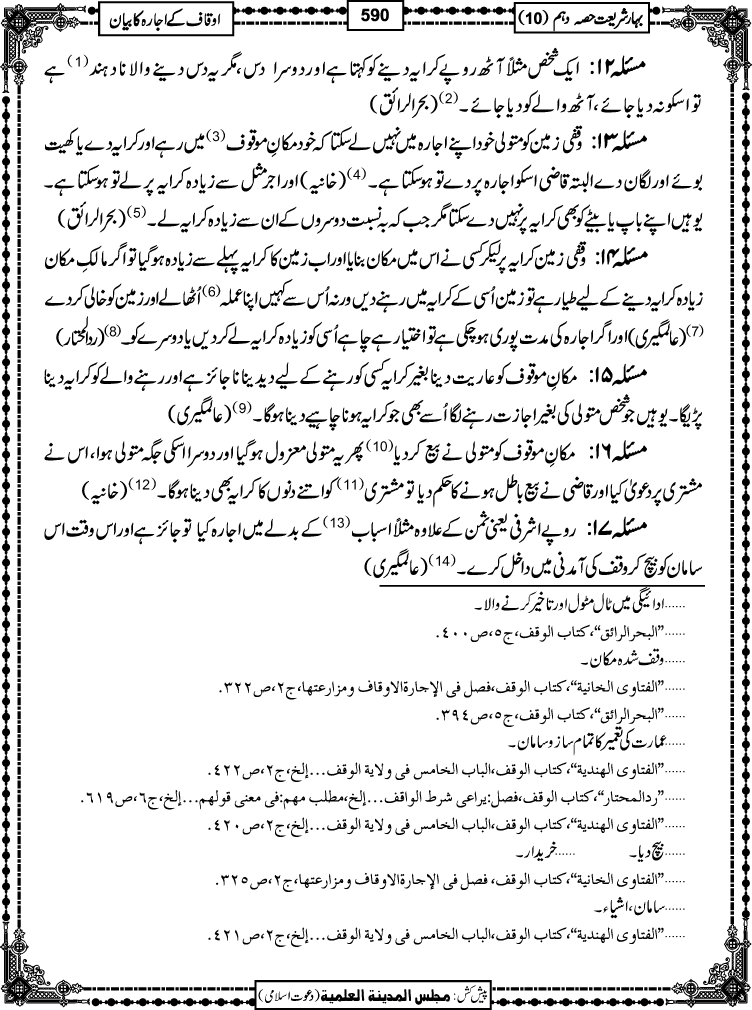 بہار شریعت حصہ دہم (10)
590
اوقاف کے اجارہ کا بیان
مسئلہ ۱۲: ایک شخص مثلاً آٹھ روپے کرایہ دینے کو کہتا ہے اور دوسرا دس، مگر یہ دس دینے والا نادہند (1) ہے
تو اسکو نہ دیا جائے، آٹھ والے کو دیا جائے۔ (2) (بحرالرائق)
مسئلہ ۱۳: وقفی زمین کو متولی خود اپنے اجارہ میں نہیں لے سکتا کہ خود مکانِ موقوف (3) میں رہے اور کرایہ دے یا کھیت
بوئے اور لگان دے البتہ قاضی اسکو اجارہ پر دے تو ہوسکتا ہے۔ (4) (خانیہ) اور اجرِ مثل سے زیادہ کرایہ پر لے تو ہوسکتا ہے۔
یوہیں اپنے باپ یا بیٹے کو بھی کرایہ پر نہیں دے سکتا مگر جب کہ بہ نسبت دوسروں کے ان سے زیادہ کرایہ لے۔ (5) (بحرالرائق)
مسئلہ ۱۴: وقفی زمین کرایہ پر لیکر کسی نے اس میں مکان بنایا اور اب زمین کا کرایہ پہلے سے زیادہ ہوگیا تو اگر مالکِ مکان
زیادہ کرایہ دینے کے لیے طیار ہے تو زمین اُسی کے کرایہ میں رہنے دیں ورنہ اُس سے کہیں اپنا عملہ (6) اُٹھالے اور زمین کو خالی کردے
(7) (عالمگیری) اور اگر اجارہ کی مدت پوری ہوچکی ہے تو اختیار ہے چاہے اُسی کو زیادہ کرایہ لے کردیں یا دوسرے کو۔ (8) (ردالمحتار)
مسئلہ ۱۵: مکانِ موقوف کو عاریت دینا بغیر کرایہ کسی کو رہنے کے لیے دیدینا ناجائز ہے اور رہنے والے کو کرایہ دینا
پڑیگا۔ یوہیں جو شخص متولی کی بغیر اجازت رہنے لگا اُسے بھی جو کرایہ ہونا چاہیے دینا ہوگا۔ (9) (عالمگیری)
مسئلہ ۱۶: مکانِ موقوف کو متولی نے بیع کردیا (10) پھر یہ متولی معزول ہوگیا اور دوسرا اسکی جگہ متولی ہوا، اس نے
مشتری پر دعویٰ کیا اور قاضی نے بیع باطل ہونے کا حکم دیا تو مشتری (11) کو اتنے دنوں کا کرایہ بھی دینا ہوگا۔ (12) (خانیہ)
مسئلہ ۱۷: روپے اشرفی یعنی ثمن کے علاوہ مثلاً اسباب (13) کے بدلے میں اجارہ کیا تو جائز ہے اور اس وقت اس
سامان کو بیچ کر وقف کی آمدنی میں داخل کرے۔ (14) (عالمگیری)
......ادائیگی میں ٹال مٹول اور تاخیر کرنے والا۔
......”البحرالرائق“،کتاب الوقف،ج٥،ص٤٠٠.
......وقف شدہ مکان۔
......”الفتاوى الخانية“،كتاب الوقف،فصل فی الإجارة الاوقاف ومزارعتها،ج٢،ص٣٢٢.
......”البحرالرائق“،کتاب الوقف،ج٥،ص٣٩٤.
......عمارت کی تعمیر کا تمام ساز و سامان۔
......”الفتاوى الهندية“،كتاب الوقف،الباب الخامس فی ولاية الوقف...إلخ،ج٢،ص٤٢٢.
......”ردالمحتار“،كتاب الوقف،فصل:يراعى شرط الواقف...إلخ،مطلب مهم:فى معنى قولهم...إلخ،ج٦،ص٦١٩.
......”الفتاوى الهندية“،كتاب الوقف،الباب الخامس فی ولاية الوقف...إلخ،ج٢،ص٤٢٠.
......بیچ دیا۔ ......خریدار۔
......”الفتاوى الخانية“،كتاب الوقف، فصل فی الإجارة الاوقاف ومزارعتها،ج٢،ص٣٢٥.
......سامان،اشیاء۔
......”الفتاوى الهندية“،كتاب الوقف،الباب الخامس فی ولاية الوقف...إلخ،ج٢،ص٤٢١.
پیش کش: مجلس المدينة العلمية (دعوتِ اسلامی)